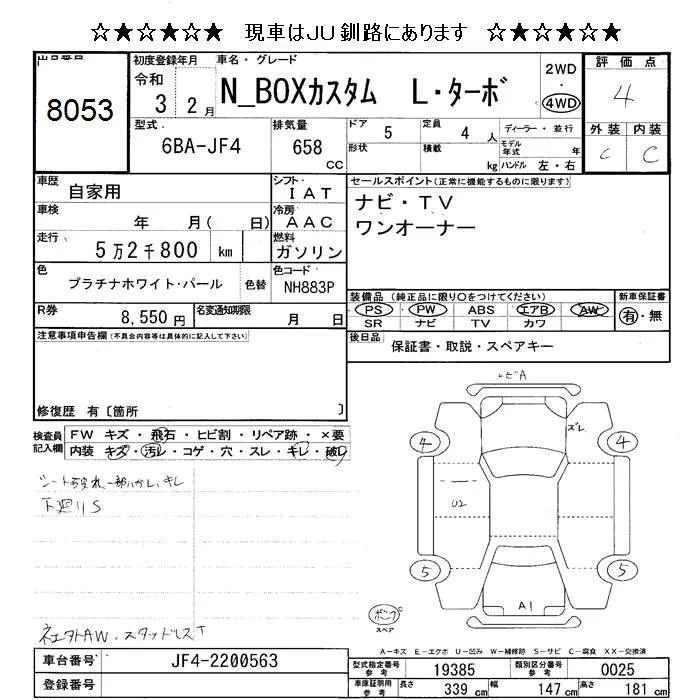 ☆★☆★☆★ 現車はJU釧路にあります ☆★☆★☆★
出品番号
8053
初度登録年月
令和
3 2月
車名・グレード
N_BOXカスタム L・ターボ
2WD
・
4WD
評価点
4
外装 内装
C C
型式
6BA-JF4
排気量
658
cc
ドア 5
定員 4 人
形状
積載 kg
ディーラー・並行
モデル年式 年
ハンドル 左・右
車歴
自家用
シフト
IAT
車検
年 月( 日)
冷房
AAC
走行
5万2千800 km
燃料
ガソリン
色
プラチナホワイト・パール
色替
色コード
NH883P
R券
8,550円
名変通知期限
月 日
セールスポイント(正常に機能するものに限ります)
ナビ・TV
ワンオーナー
装備品(純正品に限り○をつけてください)
PS PW ABS エアB AW
SR ナビ TV カワ
新車保証書
有・無
後日品
保証書・取説・スペアキー
注意事項申告欄(不具合内容等は具体的に記入して下さい)
修復歴 有〔箇所 〕
検査員記入欄
FW キズ・飛石・ヒビ割・リペア跡・×要
内装 キズ・汚レ・コゲ・穴・スレ・キレ・破レ
シート汚れ、一部ハガレ、キレ
下廻りS
AW・スタッドレス
トビA
ズレ
4 4
U2
5 5
A1
スペア
A-キズ E-エクボ U-凹み W-補修跡 S-サビ C-腐食 XX-交換済
車台番号
JF4-2200563
登録番号
型式指定番号
参考
19385
類別区分番号
参考
0025
車庫証明用
参考
長さ 339 cm
幅 147 cm
高さ 181 cm